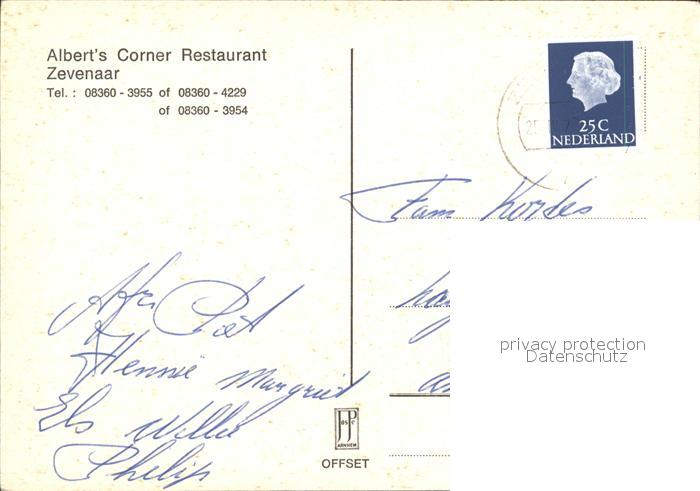 Albert's Corner Restaurant
Zevenaar
Tel. : 08360 - 3955 of 08360 - 4229
of 08360 - 3954
25 C
NEDERLAND
Fam Kordes
privacy protection
Datenschutz
Piet
Hennie Margriet
Els Willie
Philip
JosPe
ARNHEM
OFFSET